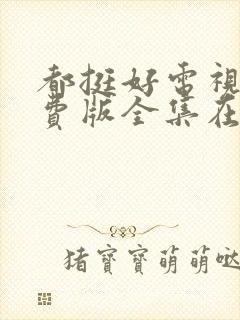 都挺好電視
費版全集在
猪寶寶萌萌噠